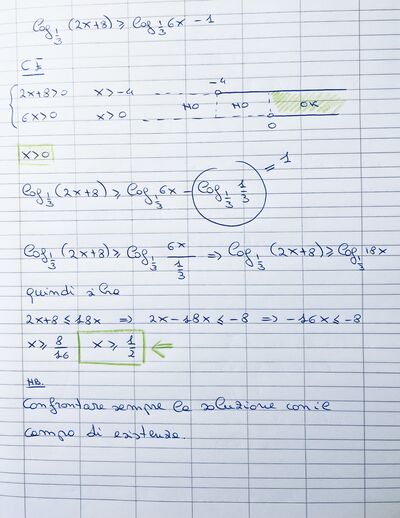 log_{1/3} (2x+8) ≥ log_{1/3} 6x - 1
C E
{ 2x+8>0   x>-4
-4
NO   NO   OK
6x>0   x>0
0
x>0
log_{1/3} (2x+8) ≥ log_{1/3} 6x - log_{1/3} 1/3 = 1
log_{1/3} (2x+8) ≥ log_{1/3} 6x/(1/3) => log_{1/3} (2x+8) ≥ log_{1/3} 18x
quindi si ha
2x+8 ≤ 18x => 2x-18x ≤ -8 => -16x ≤ -8
x ≥ 8/16   x ≥ 1/2 ⇐
NB.
Confrontare sempre la soluzione con il
campo di esistenza.